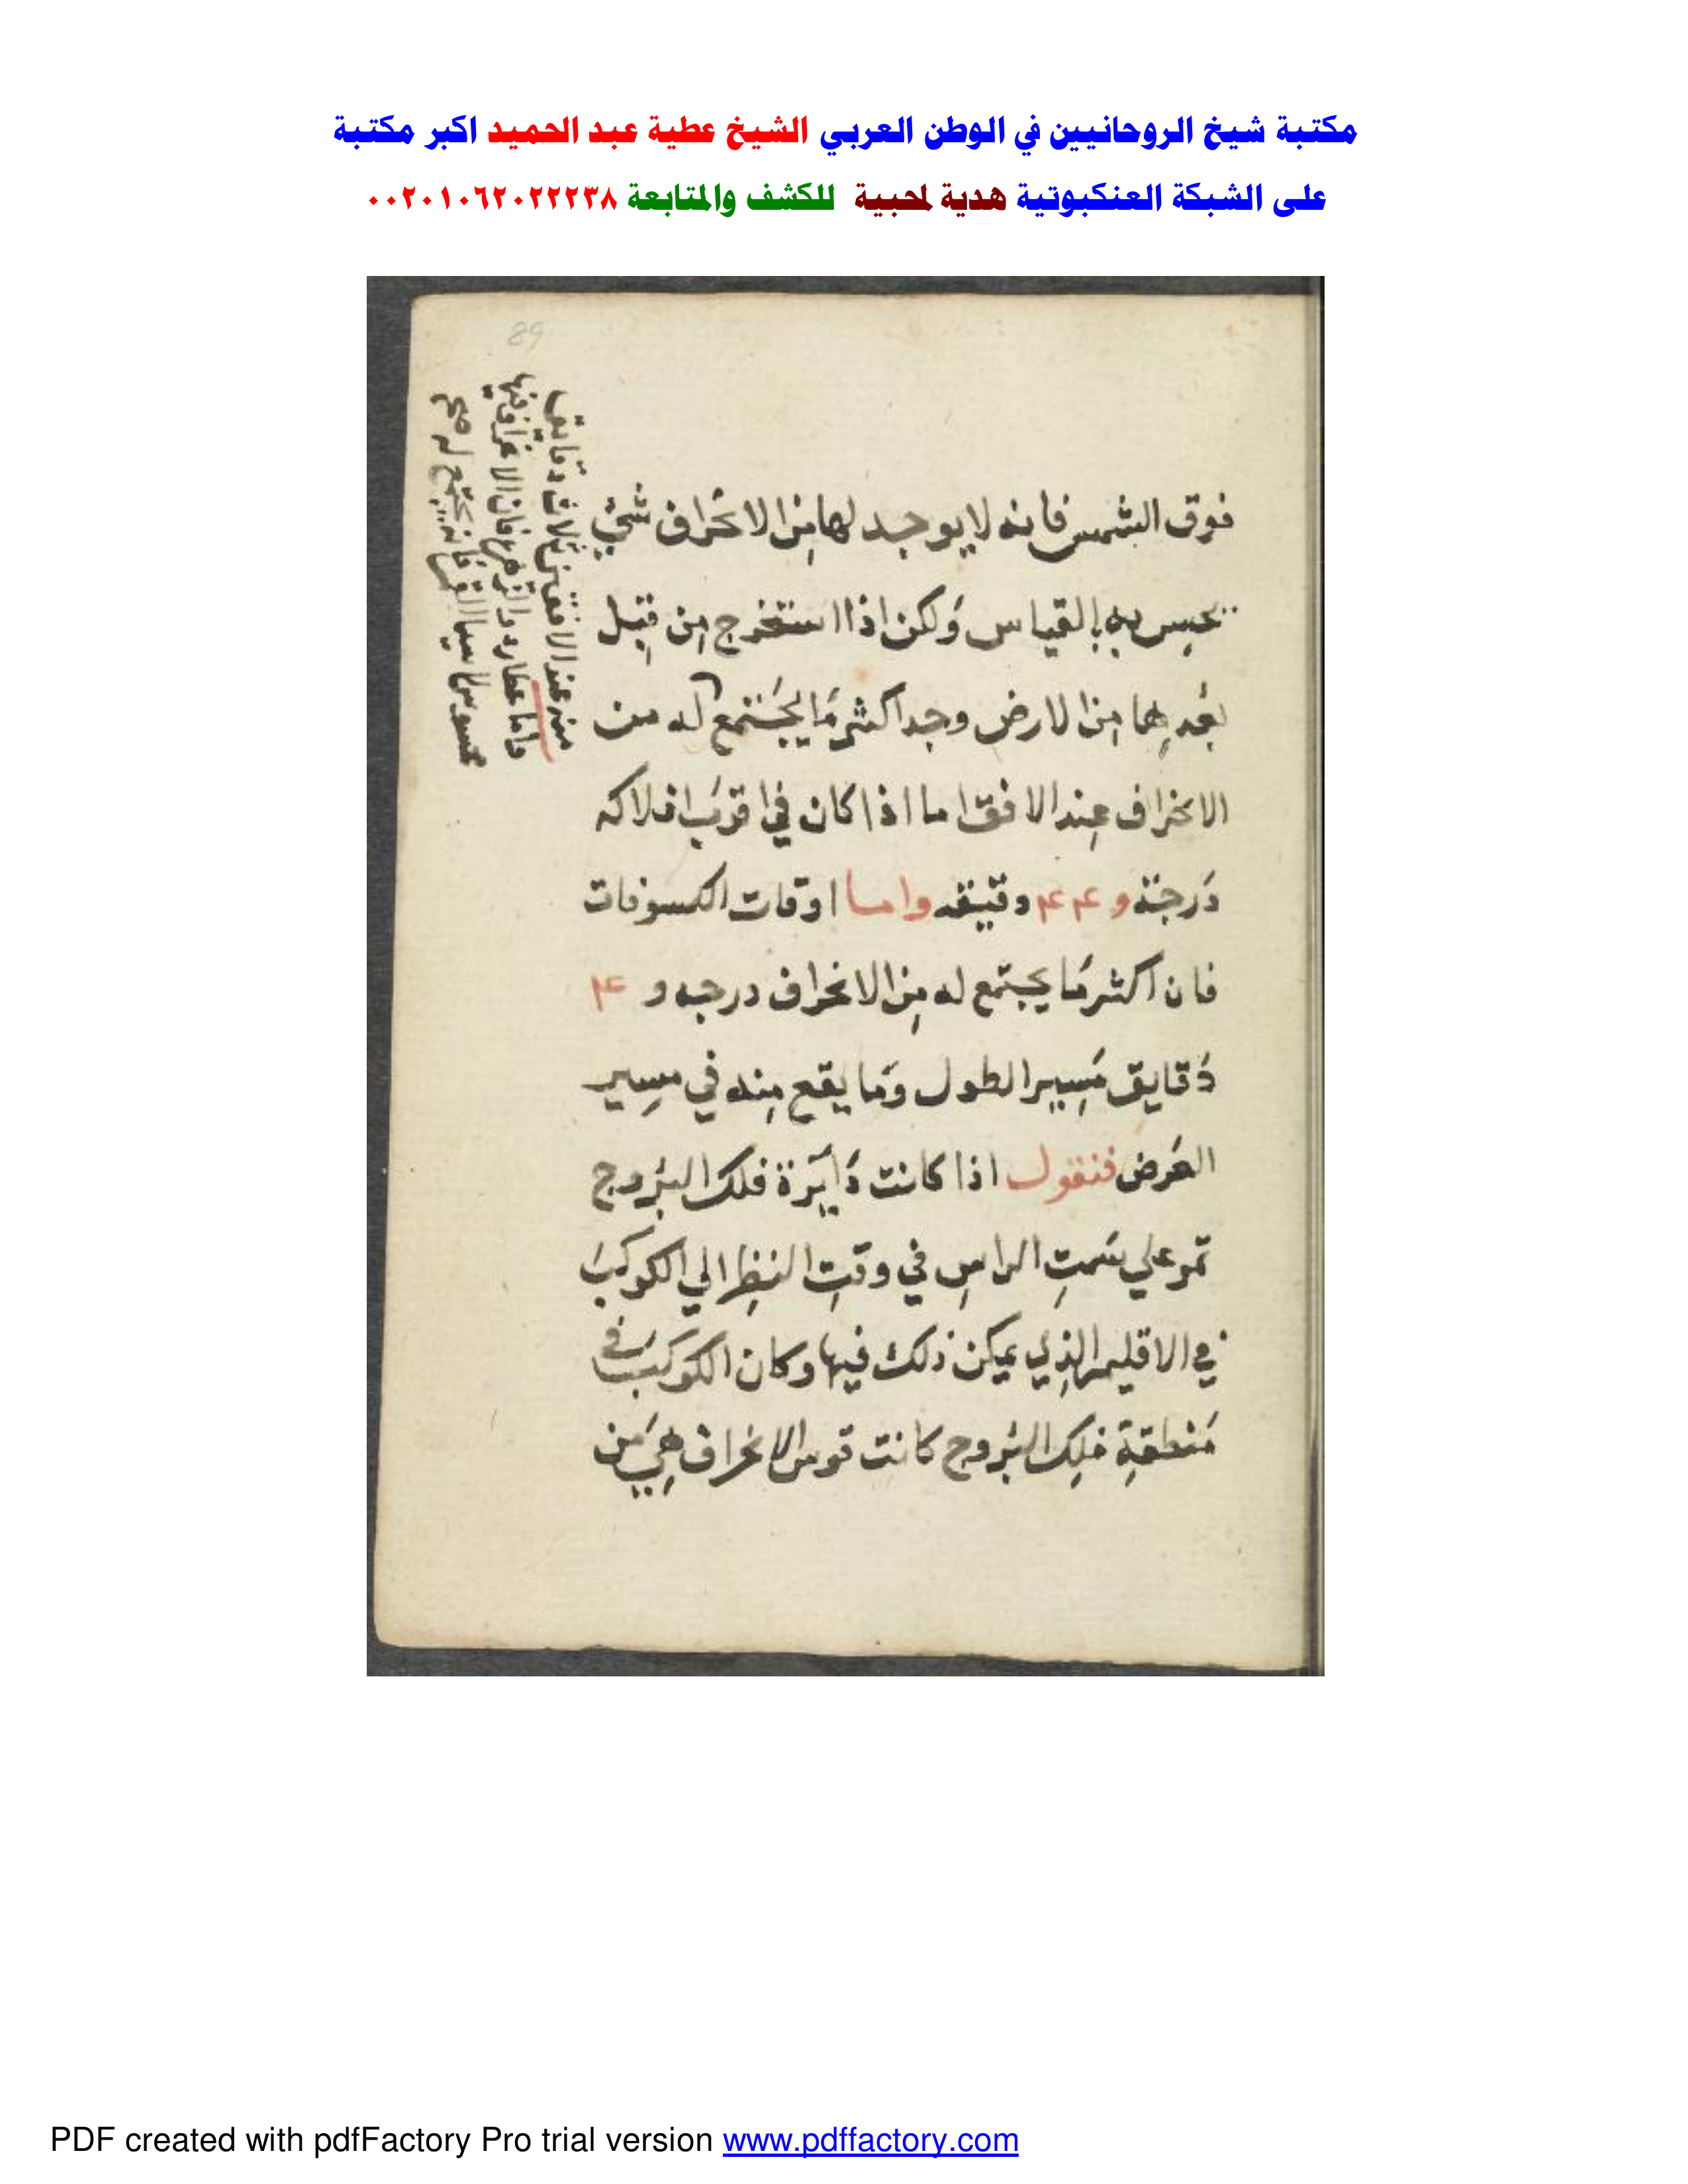 مكتبة شيخ الروحانيين في الوطن العربي الشيخ عطية عبد الحميد اكبر مكتبة
على الشبكة العنكبوتية هدية لمحبية للكشف والمتابعة ٠٠٢٠١٠٦٢٠٢٢٢٣٨
89
فوق الشمس فانه لا يوجد لها مِن الانحراف شيٌ
يحس به بالقياس وَلكن اذا استخرج مِن قِبل
بُعدِها مِن الارض وجد اكثر مَا يجتمع له من
الانحراف عِند الافق اما اذا كان في اقرب افلاكه
دَرجة و ٤٤ دقيقه واما اوقات الكسوفات
فان اكثر مَا يجتمع له مِن الانحراف درجه و ٤
دَقايق مَسِير الطول وَما يقع مِنه في مسِير
العَرض فنقول اذا كانت دَايَرة فلك البُروج
تمر علي سَمتِ الراسِ في وقتِ النظِر الي الكوكب
في الاقليم الذِي يمكن ذلك فيها وكان الكوكب في
مَنطقةِ فلِك البُروج كانت قوس الانحراف هِيَ من
منه عند الافق ثلاث دقايق
واما عطارد والزهره فان الانحراف فيها
محسوس لا سيما القمر فانه يجتمع له صح
PDF created with pdfFactory Pro trial version www.pdffactory.com